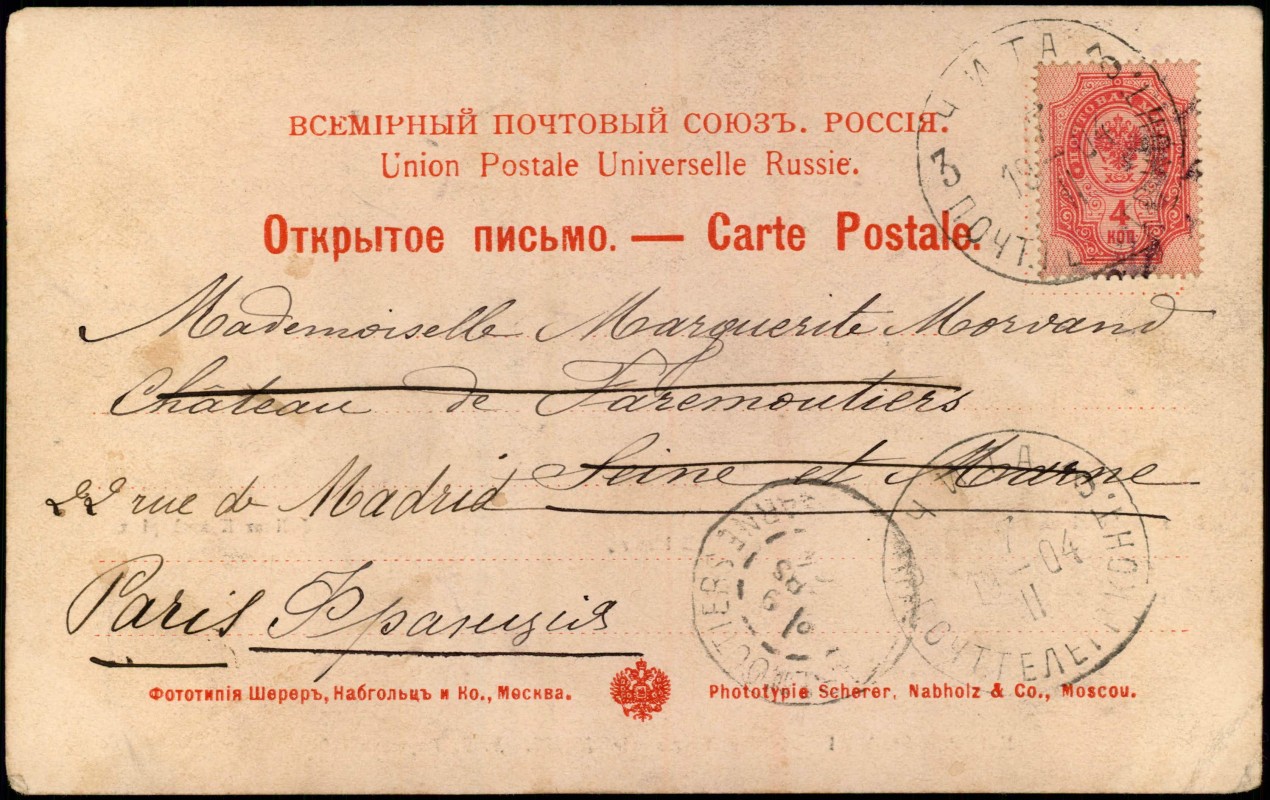 ВСЕМІРНЫЙ ПОЧТОВЫЙ СОЮЗЪ. РОССІЯ.
Union Postale Universelle Russie.
Открытое письмо. — Carte Postale.
4
КОП
ЧИТА
3
Mademoiselle Marguerite Morvand
Château de Faremoutiers
Seine et Marne
22 rue de Madrid
Paris Франція
ЧИТА
1
04
11
ПОЧТ.ТЕЛЕГ. КОНТ.
MARNE
Фототипія Шереръ, Набгольцъ и Ко., Москва.
Phototypie Scherer, Nabholz & Co., Moscou.